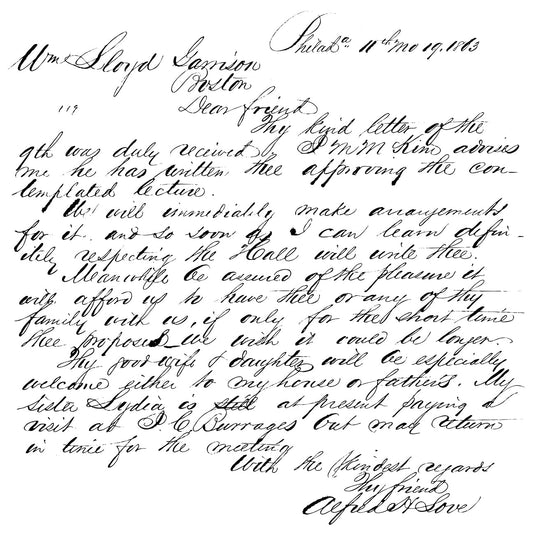 Philada. 11th mo 19. 1863
Wm Lloyd Garrison
Boston
119
Dear friend
Thy kind letter of the
9th was duly received. J M McKim advises
me he has written thee approving the con-
templated lecture.
We will immediately make arrangements
for it. and so soon as I can learn defin-
itely respecting the Hall will write thee.
Meanwhile be assured of the pleasure it
will afford us to have thee or any of thy
family with us, if only for the short time
thee proposes we wish it could be longer.
Thy good wife & daughter will be especially
welcome either to my house or fathers. My
sister Lydia is still at present paying a
visit at J. C Burrages but may return
in time for the meeting
With the kindest regards
Thy friend
Alfred H Love